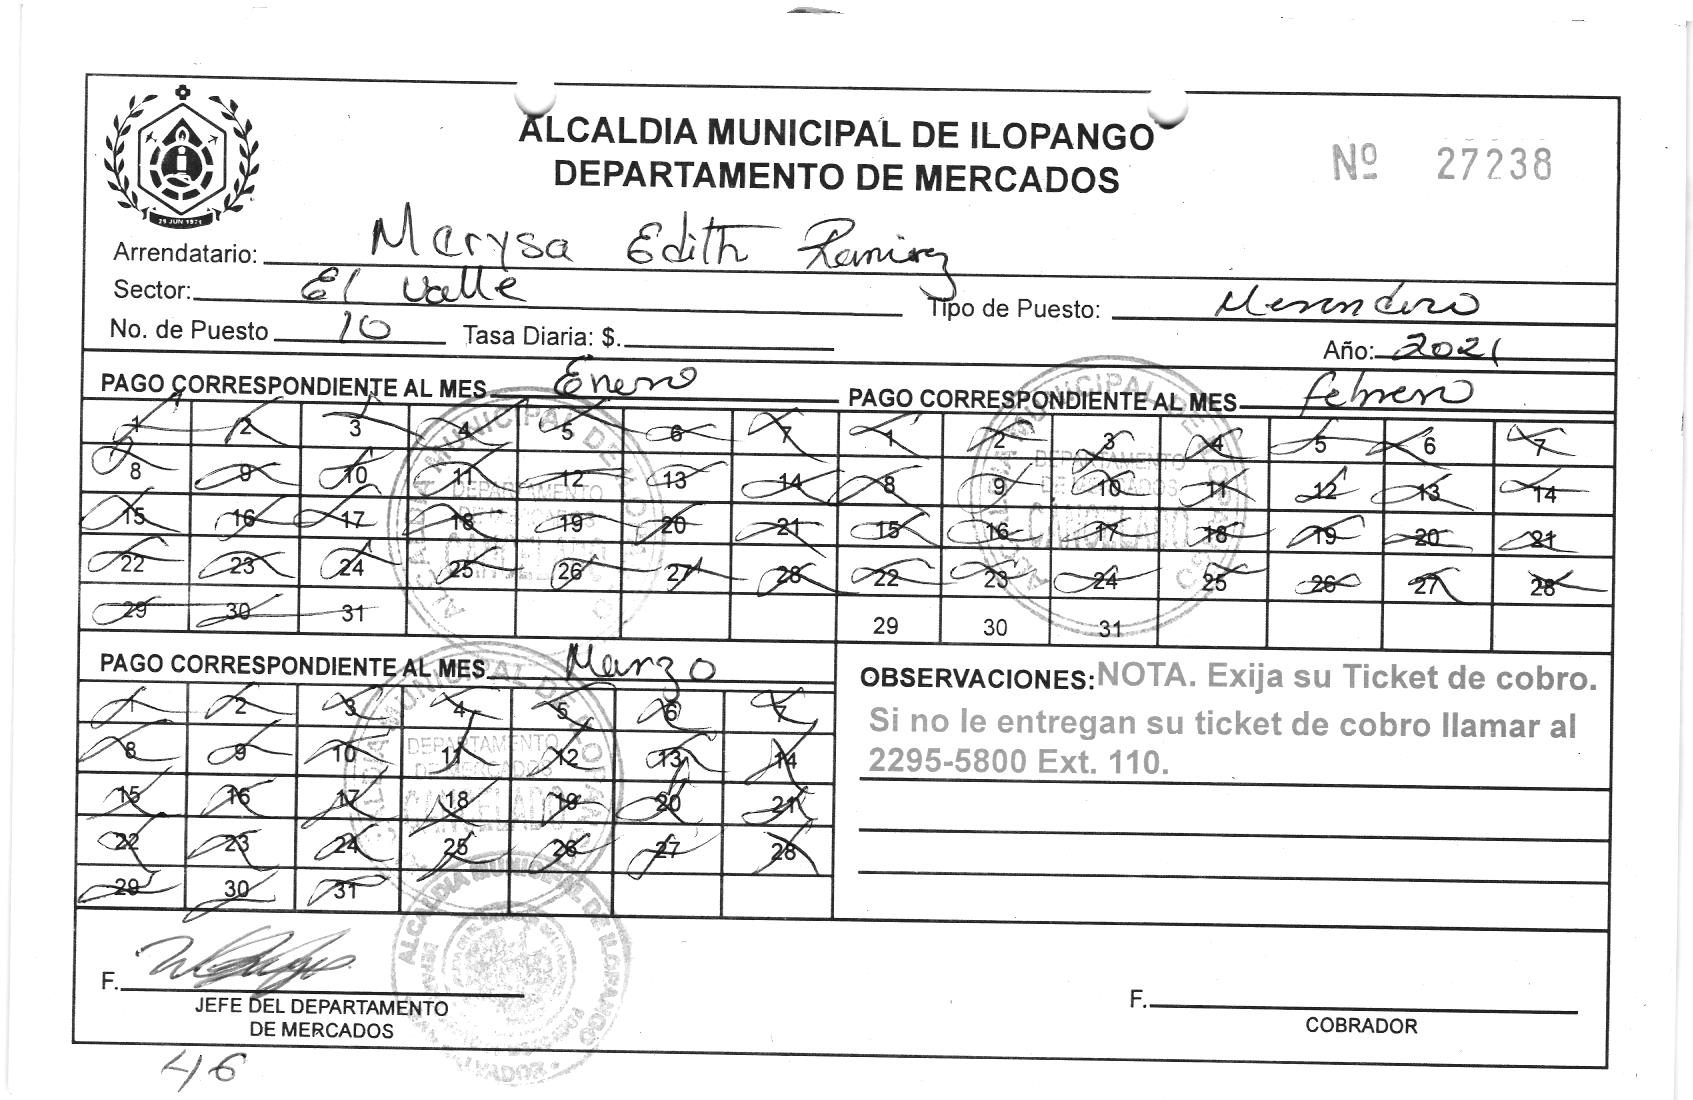 ALCALDIA MUNICIPAL DE ILOPANGO
DEPARTAMENTO DE MERCADOS
Nº 27238
29 JUN 1971
Arrendatario: Marysa Edith Ramirez
Sector: El Valle
Tipo de Puesto: Merendero
No. de Puesto 10 Tasa Diaria: $.
Año: 2021
PAGO CORRESPONDIENTE AL MES Enero
1 2 3 4 5 6 7
8 9 10 11 12 13 14
15 16 17 18 19 20 21
22 23 24 25 26 27 28
29 30 31
ALCALDIA MUNICIPAL DE ILOPANGO
DEPARTAMENTO
DE MERCADOS
CANCELADO
PAGO CORRESPONDIENTE AL MES febrero
1 2 3 4 5 6 7
8 9 10 11 12 13 14
15 16 17 18 19 20 21
22 23 24 25 26 27 28
29 30 31
ALCALDIA MUNICIPAL DE ILOPANGO
DEPARTAMENTO
DE MERCADOS
CANCELADO
PAGO CORRESPONDIENTE AL MES Marzo
1 2 3 4 5 6 7
8 9 10 11 12 13 14
15 16 17 18 19 20 21
22 23 24 25 26 27 28
29 30 31
ALCALDIA MUNICIPAL DE ILOPANGO
DEPARTAMENTO
DE MERCADOS
CANCELADO
OBSERVACIONES: NOTA. Exija su Ticket de cobro.
Si no le entregan su ticket de cobro llamar al
2295-5800 Ext. 110.
F.
JEFE DEL DEPARTAMENTO
DE MERCADOS
ALCALDIA MUNICIPAL DE ILOPANGO
F.
COBRADOR
46